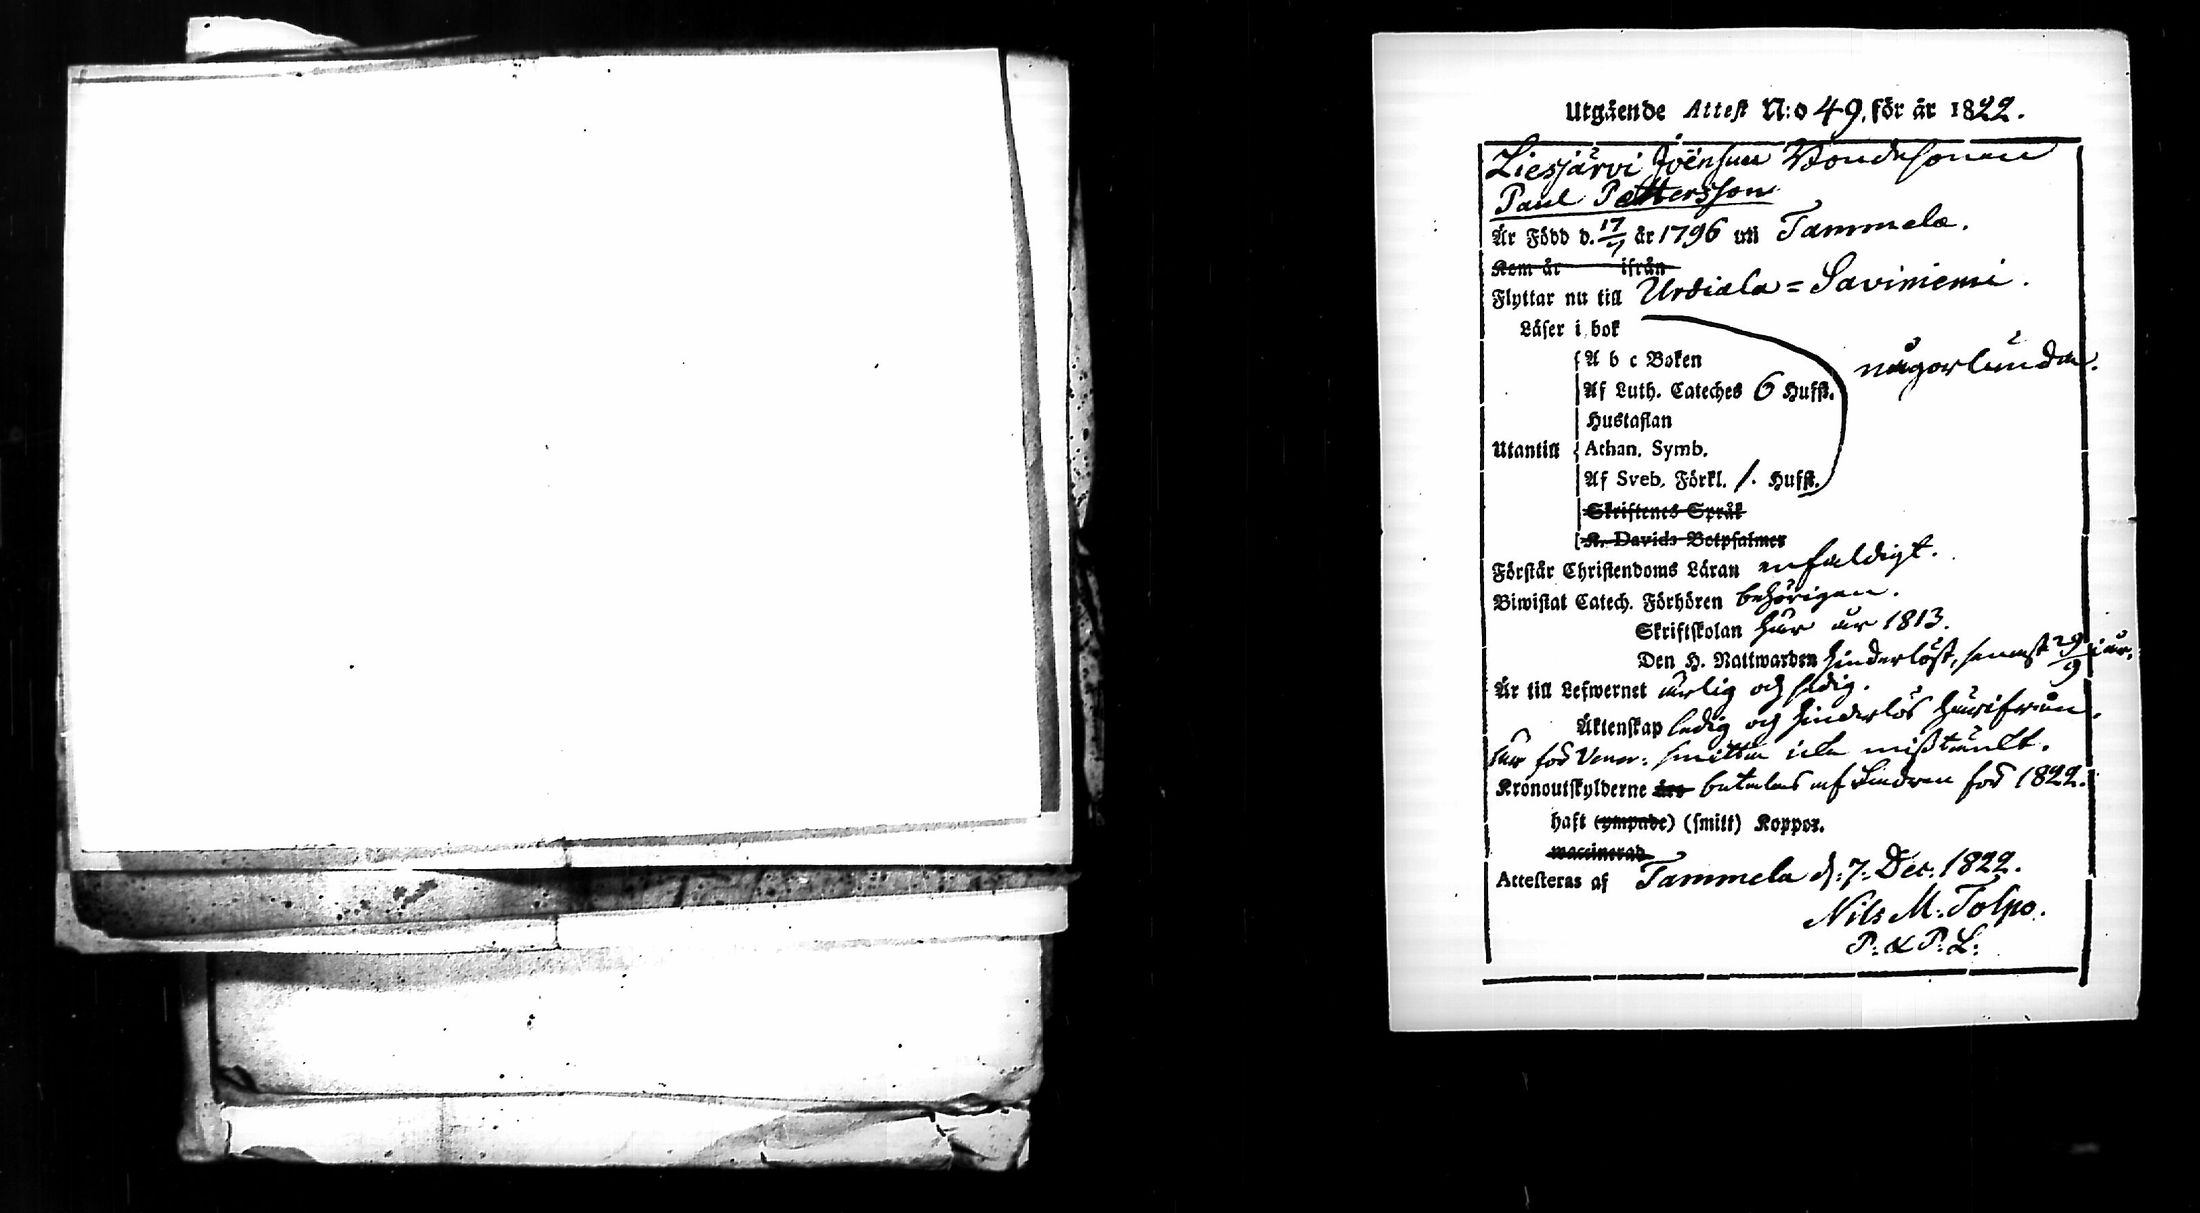 Utgående Attest N:o 49. för år 1822.
Liesjärvi Joensuu Bondesonen
Paul Pettersson
Är Född d. 17/7 år 1796 uti Tammela.
Kom år ifrån
Flyttar nu till Urdiala = Saviniemi.
Läser i bok
A b c Boken
någorlunda.
Af Luth. Cateches 6 Hufst.
Hustaflan
Utantill Athan. Symb.
Af Sveb. Förkl. 1. Hufst.
Skriftenes Språk
K. Davids Botpsalmer
Förstår Christendoms Läran enfaldigt.
Biwistat Catech. Förhören behörigen.
Skriftskolan här år 1813.
Den H. Nattwarden hinderlöst, senast 29/9 i år.
Är till Lefwernet ärlig och sedig.
Äktenskap ledig och hinderlös härifrån.
för Vener: smitta icke misstänkt.
Kronoutskylderne äro betalas af Bonden för 1822.
haft (ympade) (smitt) Koppor.
waccinerad
Attesteras af Tammela d. 7. Dec. 1822.
Nils M. Tolpo.
P. & P. L.